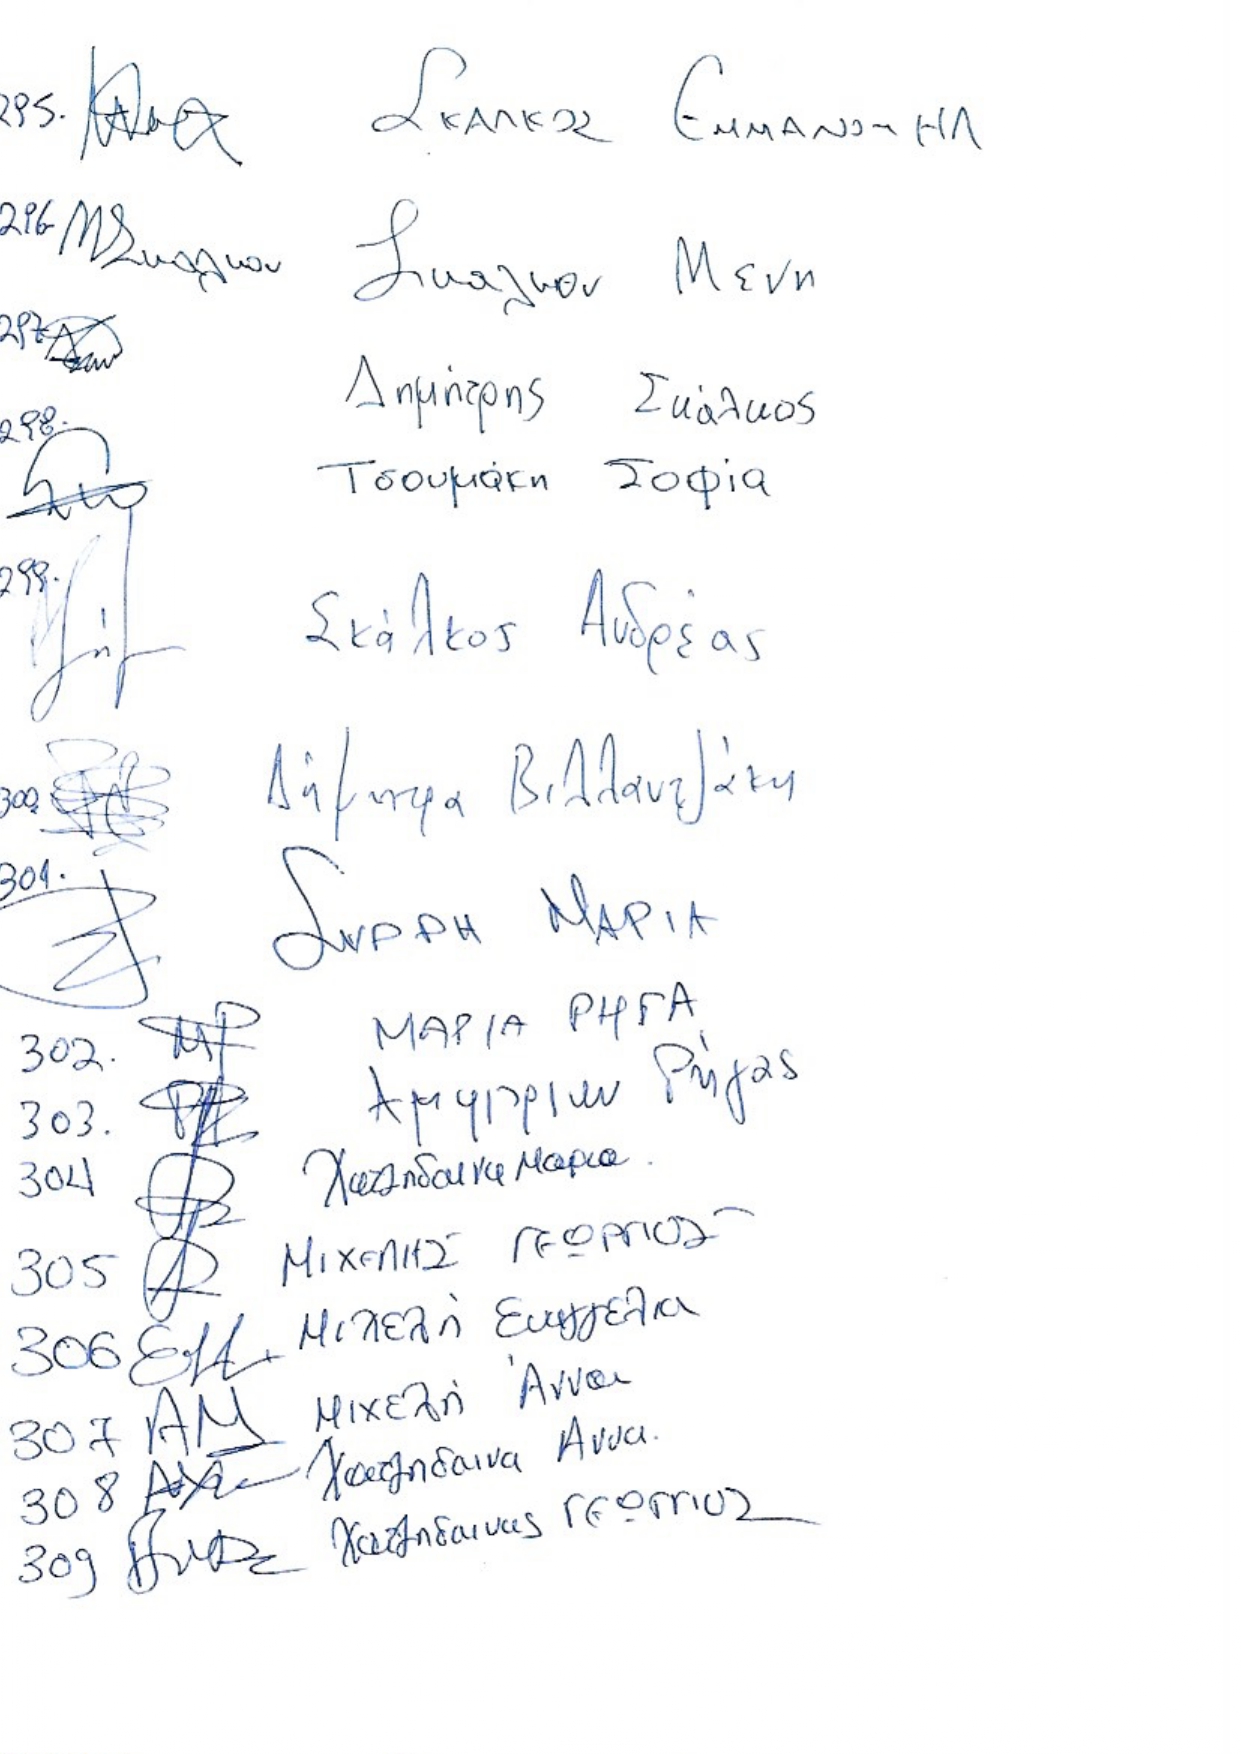 295. ΣΚΑΛΚΟΣ ΕΜΜΑΝΟΥΗΛ
296 ΜΣκαλκου Σκαλκου Μενη
297 Δημήτρης Σκάλκος
298. Τσουμάκη Σοφία
299. Σκάλκος Ανδρέας
300. Δήμητρα Βιλλαντζάκη
301. ΣΥΡΡΗ ΜΑΡΙΑ
302. ΜΡ ΜΑΡΙΑ ΡΗΓΑ
303. Ρήγας
304 Χατζηδαινα Μαρια.
305 ΜΙΧΕΛΗΣ ΓΕΩΡΓΙΟΣ
306 ΕΜ. Μιχελή Ευαγγελια
307 ΑΜ Μιχελή Άννα
308 Χατζηδαινα Αννα.
309 Χατζηδαινας ΓΕΩΡΓΙΟΣ